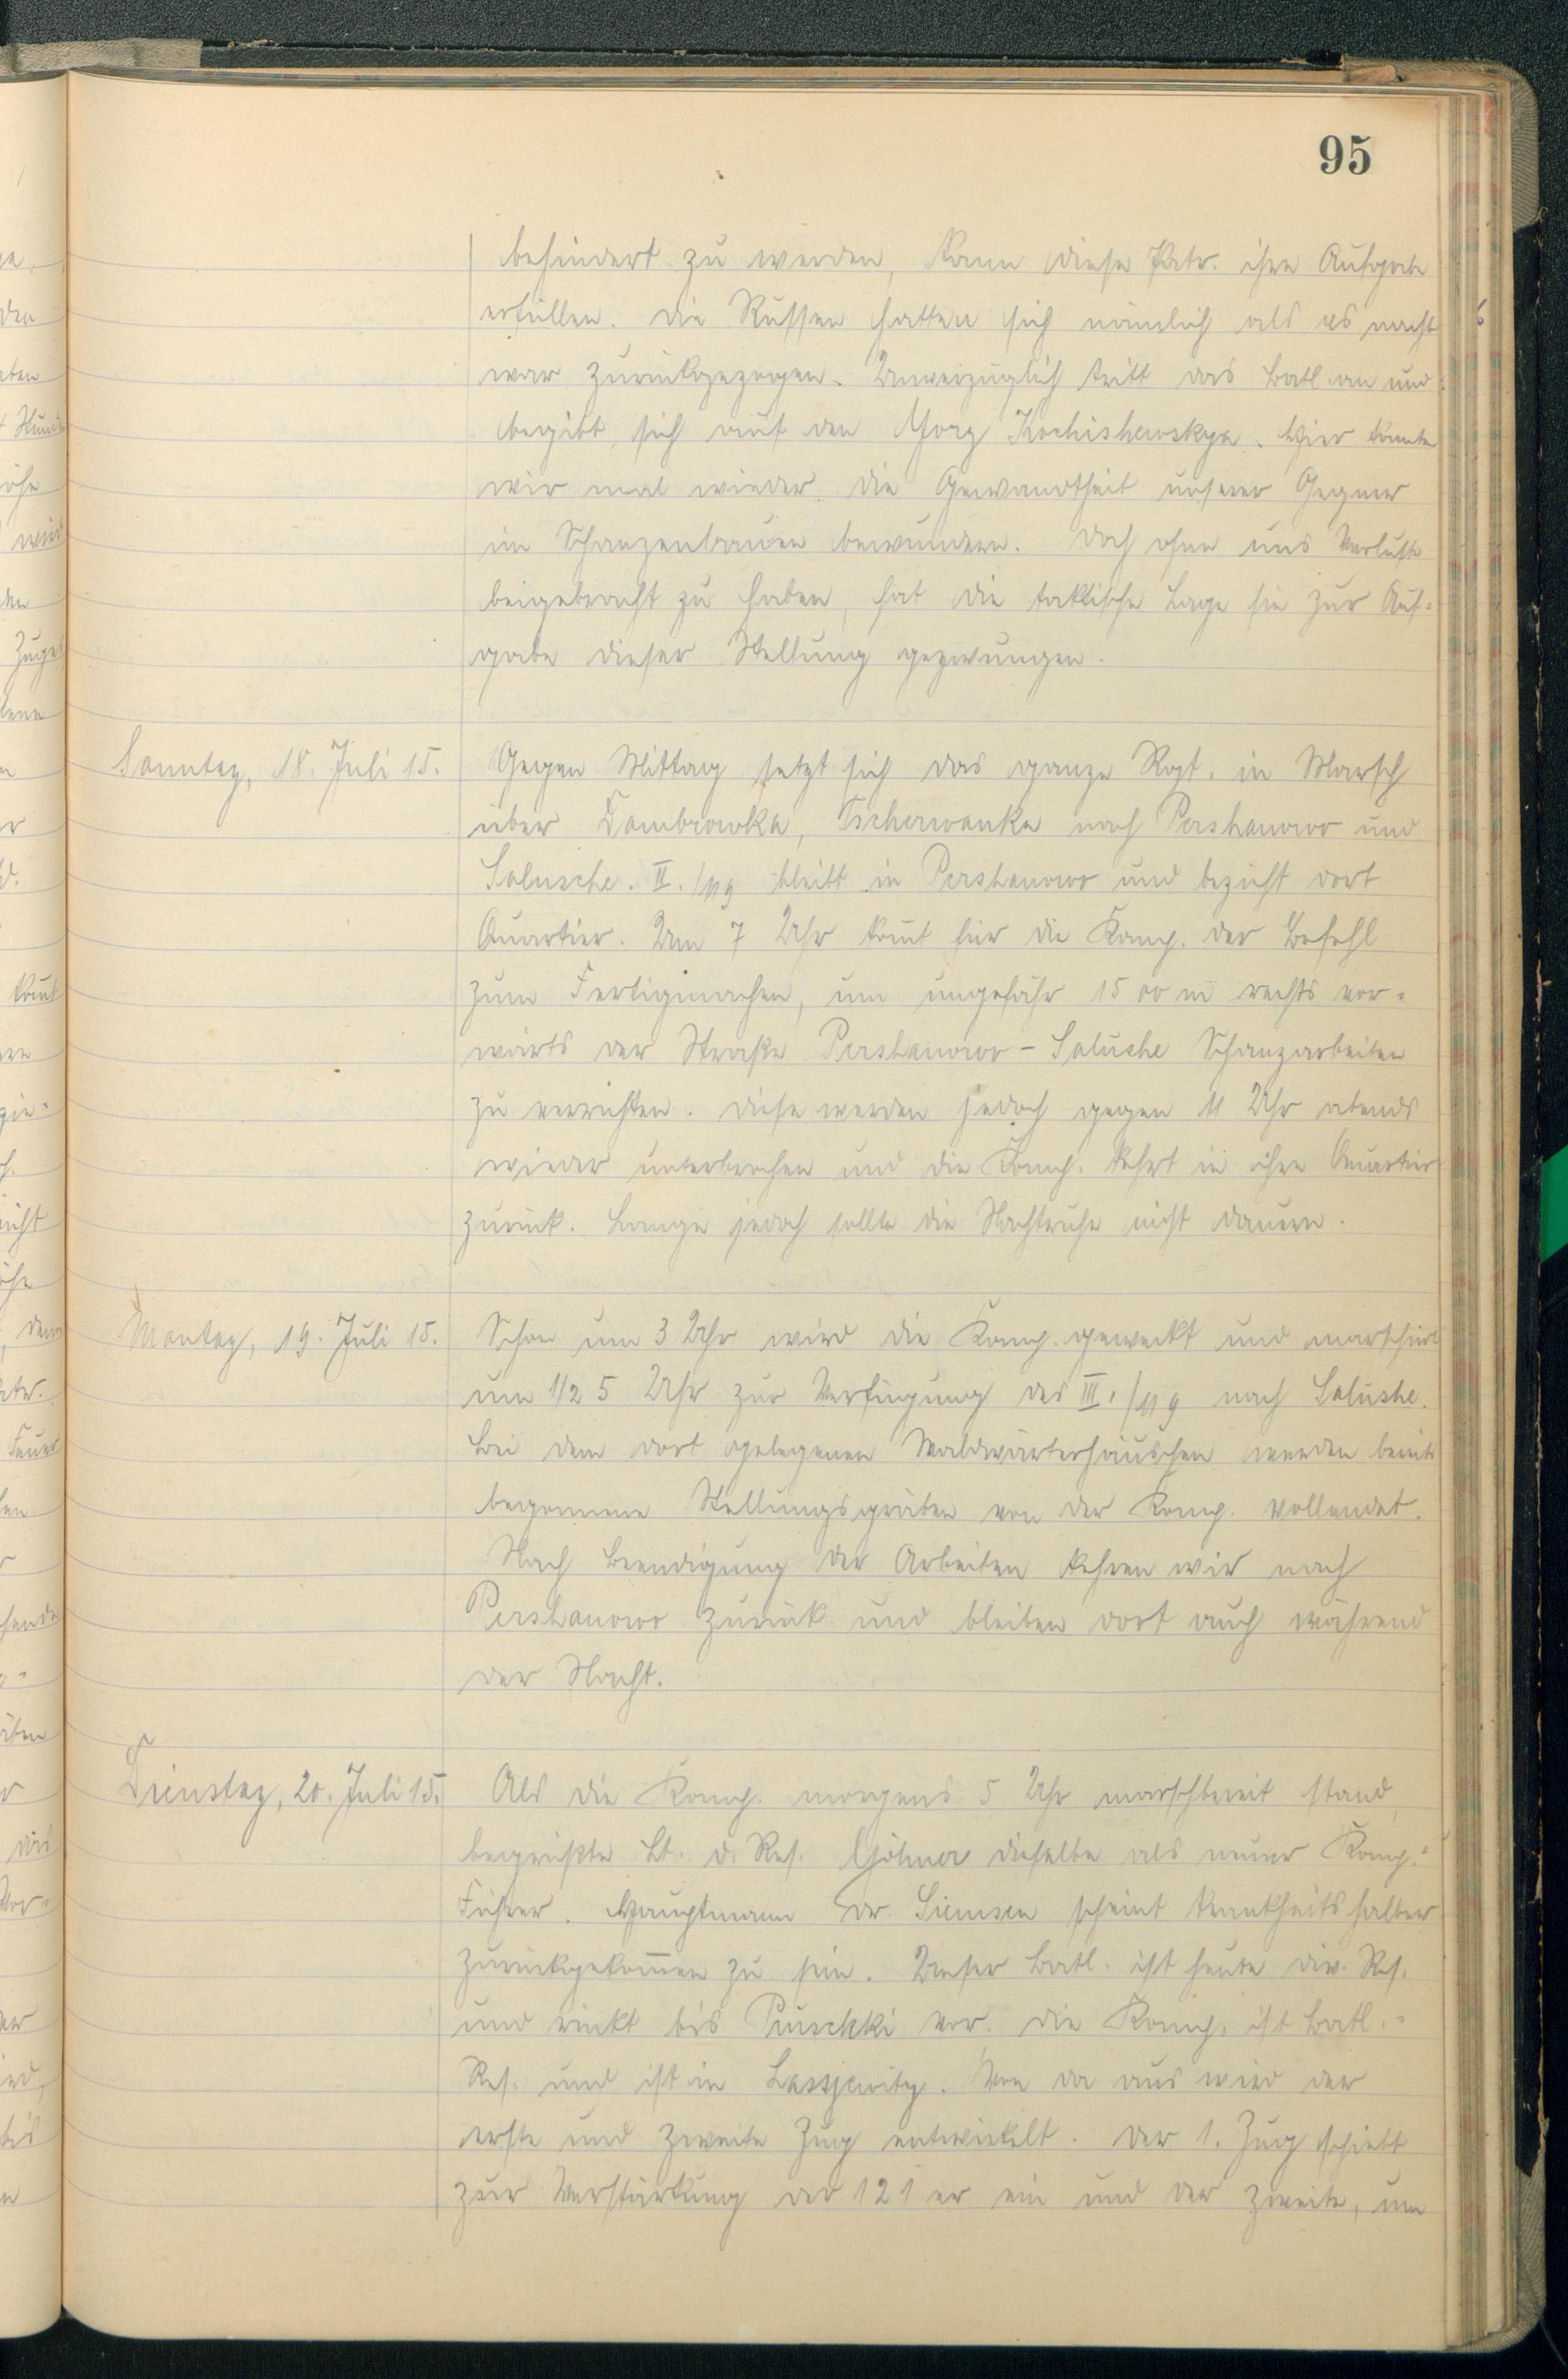 95
behindert zu werden, kann diese Patr. ihre Aufgabe
erfüllen. Die Russen hatten sich nämlich als es nacht
war zurückgezogen. Unverzüglich tritt das Batl. an und
begibt sich auf den Morg Kochishewskya. Hier konnten
wir mal wieder die Gewandtheit unserer Gegner
im Schanzenbauen bewundern. Doch ohne uns Verluste
beigebracht zu haben, hat die taktische Lage sie zur Auf-
gabe dieser Stellung gezwungen.
Sonntag, 18. Juli 15.
Gegen Mittag setzt sich das ganze Rgt. in Marsch
über Dombrowka, Tscherwonka nach Pershanowo und
Salusche. II./119 bleibt in Pershanowo und bezieht dort
Quartier. Um 7 Uhr komt für die Komp. der Befehl
zum Fertigmachen, um ungefähr 1500 m rechts vor-
wärts der Straße Pershanowo - Salushe Schanzarbeiten
zu verrichten. Diese werden jedoch gegen 11 Uhr abends
wieder unterbrochen und die Komp. kehrt in ihre Quartier
zurück. Lange jedoch sollte die Nachtruhe nicht dauern.
Montag, 19. Juli 15.
Schon um 3 Uhr wird die Komp. geweckt und marschiert
um 1/2 5 Uhr zur Verfügung des III./119 nach Salushe.
Bei dem dort gelegenen Waldwärterhäuschen werden bereits
begonnene Stellungsgräben von der Komp. vollendet.
Nach Beendigung der Arbeiten kehren wir nach
Pershanowo zurück und bleiben dort auch während
der Nacht.
Dienstag, 20. Juli 15.
Als die Komp. morgens 5 Uhr marschbereit stand,
begrüßte Lt. d. Res. dieselbe als neuer Komp.-
Führer. Hauptmann Dr. Siemsen scheint krankheitshalber
zurückgekommen zu sein. Unser Batl. ist heute Div. Res.
und rückt bis Pruschki vor. Die Komp. ist Batl.-
Res. und ist in. Von da aus wird der
erste und zweite Zug entwickelt. Der 1. Zug schiebt
zur Verstärkung der 121er ein und der zweite, um